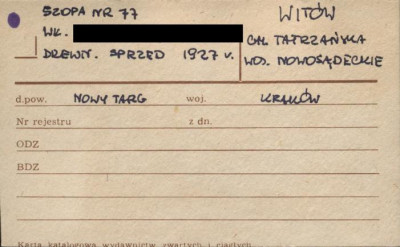 SZOPA NR 77
WŁ.
DREWN. SPRZED 1927 r.
WITÓW
GM. TATRZAŃSKA
WOJ. NOWOSĄDECKIE
d.pow. NOWY TARG woj. KRAKÓW
Nr rejestru z dn.
ODZ
BDZ
Karta katalogowa wydawnictw zwartych i ciągłych